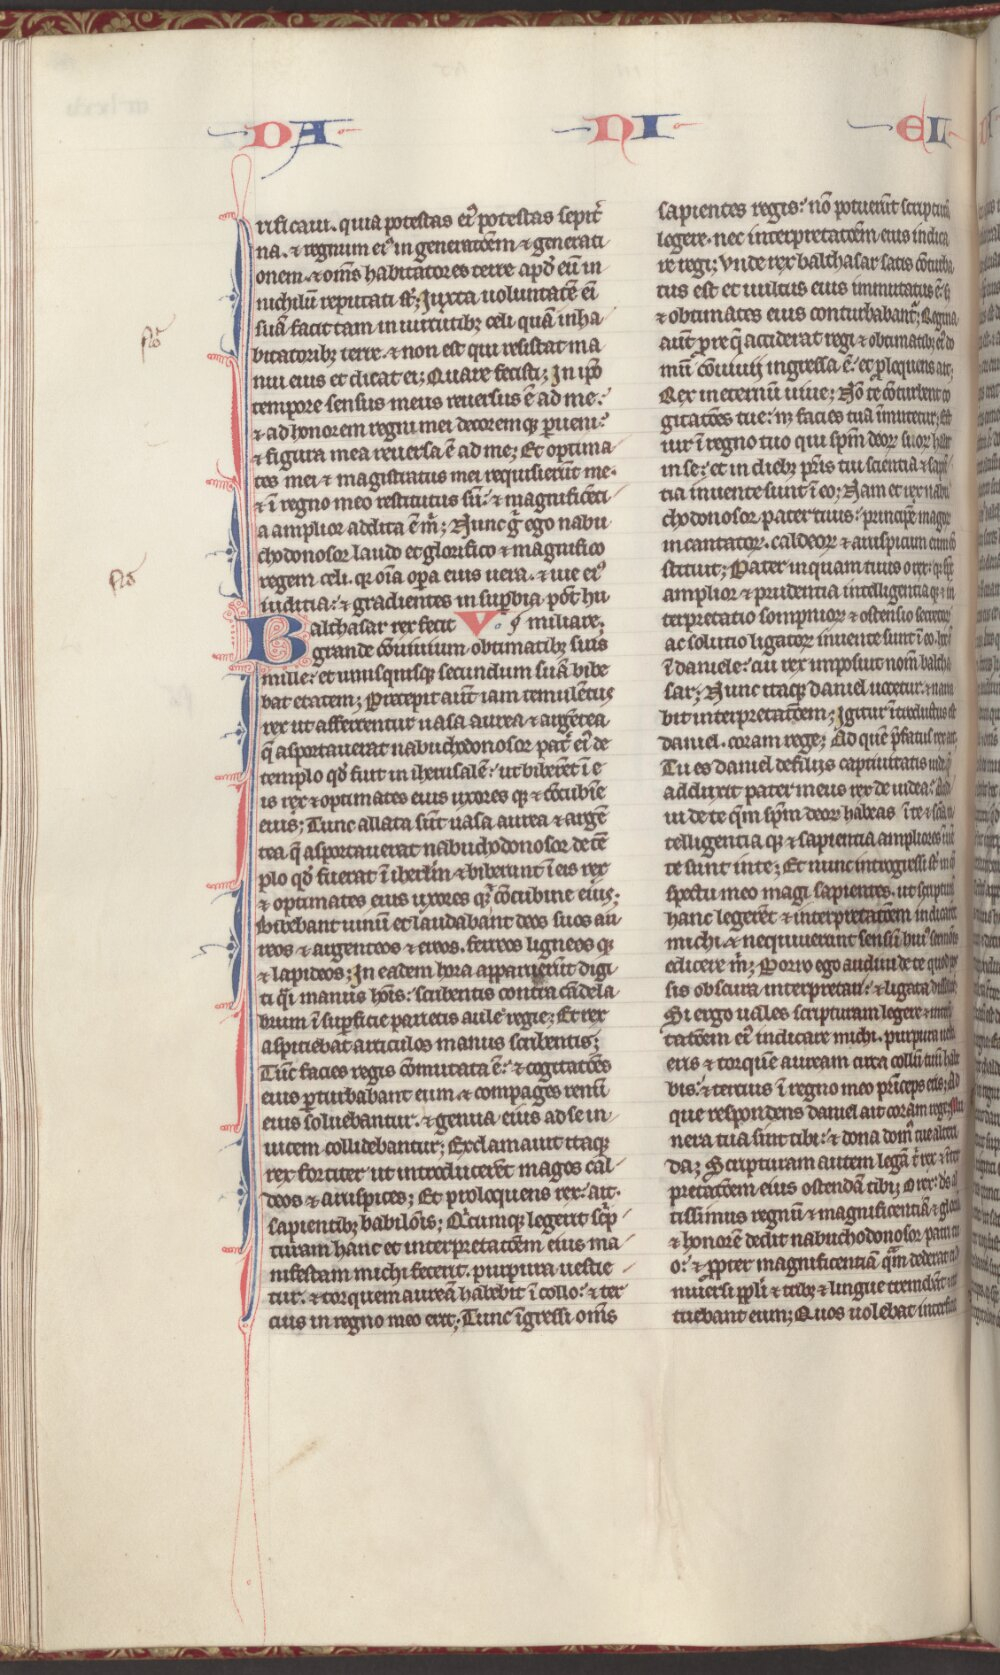 DA NI EL
rificaui. quia potestas ei᷒ potestas sepit̃
na. ⁊ regnum ei᷒ in generatõem ⁊ generati
onem. ⁊ om̃s habitatores terre apđ eũ in
nichilũ reputati sť; Iuxta uoluntatẽ eĩ
suã facit tam in uirtutibꝫ celi quã in ha
bitatoribꝫ terre. ⁊ non est qui resistat ma
nui eius et dicat ei; Quare fecisti; In ip̃o
tempore sensus meus reuersus ẽ ad me:
⁊ ad honorem regni mei decoremqꝫ ꝑueni:
⁊ figura mea reuersa ẽ ad me; Et optima
tes mei ⁊ magistratus mei requisierũt me.
⁊ ĩ regno meo restitutus sũ: ⁊ magnificẽti
a amplior addita ẽ m̃; Nunc g̃ ego nabu
chodonosor laudo et glorifico ⁊ magnifico
regem celi. qꝛ oĩa oꝑa eius uera. ⁊ uie ei᷒
iudicia: ⁊ gradientes in suꝑbia põt hu
Balthasar rex fecit V. miliare;
grande cõuiuium obtimatibꝫ suis
mille: et unusquisqꝫ secundum suã bibe
bat etatem; Precepit aũt iam temulẽtus
rex ut afferrentur uasa aurea ⁊ argẽtea
q̃ asportauerat nabuchodonosor pat̃ ei᷒ de
templo qđ fuit in iherusalẽ: ut biberẽt ĩ e
is rex ⁊ optimates eius uxores qꝫ ⁊ cõcubĩe
eius; Tunc allata sũt uasa aurea ⁊ argẽ
tea q̃ asportauerat nabuchodonosor de tẽ
plo qđ fuerat ĩ iherlm̃ ⁊ biberunt ĩ eis rex
⁊ optimates eius uxores qꝫ ⁊ cõcubine eius;
Bibebant uinũ et laudabant deos suos au
reos ⁊ argenteos ⁊ ereos. ferreos ligneos qꝫ
⁊ lapideos; In eadem hora apparuerũt digi
ti q̃i manus hoĩs: scribentis contra cãdela
brum ĩ suꝑficie parietis aule regie; Et rex
aspiciebat articulos manus scribentis;
Tũc facies regis cõmutata ẽ: ⁊ cogitatões
eius ꝑturbabant eum ⁊ compages renũ
eius soluebantur. ⁊ genua eius ad se in
uicem collidebantur; Exclamauit itaqꝫ
rex fortiter ut introducerẽt magos cal
deos ⁊ aruspices; Et proloquens rex: ait.
sapientibꝫ babilõis; Q̃cumqꝫ legerit sc̃p
turam hanc et interpretatõem eius ma
nifestam michi fecerit. purpura uestie
tur. ⁊ torquem aureã habebit ĩ collo: ⁊ ter
cius in regno meo erit; Tunc ĩgressi om̃s
sapientes regis: nõ potuerũt scripturã
legere. nec interpretatõem eius indica
re regi; Vnde rex balthasar satis cõturba
tus est et uultus eius immutatus ẽ: s;
⁊ obtimates eius conturbabant᷑; Regina
aũt pre q̃ acciderat regi ⁊ obtimatibꝫ ei᷒ do
mũ cõuiuij ingressa ẽ: et ꝓloquens ait;
Rex in eternũ uiue; Nõ te cõturbent co
gitatões tue: nꝫ facies tua ĩmutetur; Est
uir ĩ regno tuo qui sp̃m deoꝝ suoꝝ habet
in se: et in diebꝫ pr̃is tui scientia ⁊ sapĩ
tia inuente sunt ĩ eo; Nam et rex nabu
chodonosor pater tuus: principẽ magoꝝ
incantatoꝝ. caldeoꝝ ⁊ aruspicum eum cõ
stituit; Pater inquam tuus o rex: qꝛ sp̃c
amplior ⁊ prudentia intelligentia qꝫ ⁊ in
terpretatio sompnioꝝ ⁊ ostensio secretoꝝ
ac solutio ligatoꝝ inuente sunt ĩ eo. hoc
ĩ daniele: cui rex imposuit nom̃ baltha
sar; Nunc itaqꝫ daniel uocetur. ⁊ narra
bit interpretatõem; Igitur ĩtroductus est
daniel. coram rege; Ad quẽ p̃fatus rex ait;
Tu es daniel de filijs captiuitatis iude q̃
adduxit pater meus rex de iudea: Audi
ui de te qm̃ sp̃m deoꝝ habeas ⁊ sciẽa in
telligentia qꝫ ⁊ sapientia ampliores ĩuẽ
te sunt in te; Et nunc introgressi sť in cõ
spectu meo magi sapientes. ut scripturã
hanc legerẽt ⁊ interpretatõem indicarẽt
michi. ⁊ nequiuerunt sensũ hui᷒ sermõis
edicere m̃; Porro ego audiui de te quod pos
sis obscura interpretari: ⁊ ligata dissoluẽ;
Si ergo uales scripturam legere ⁊ interp̃
tatõem ei᷒ indicare michi. purpura uesti
eris ⁊ torquẽ auream circa collũ tuũ habe
bis: ⁊ tercius ĩ regno meo pr̃inceps eris; Ad
que respondens daniel ait coram rege; Mu
nera tua sint tibi: ⁊ dona dom᷒ tue alteri
da; Scripturam autem legã t̃ rex ⁊ ĩter
pretatõem eius ostendã tibi; O rex: ds̃ al
tissimus regnũ ⁊ magnificentiã ⁊ gloriã
⁊ honorẽ dedit nabuchodonosor patri tu
o: ⁊ ꝓpter magnificentiã quã dederat ei
uniũersi ppl̃i ⁊ tribꝫ ⁊ lingue tremebãt ⁊ me
tuebant eum; Quos uolebat interficie